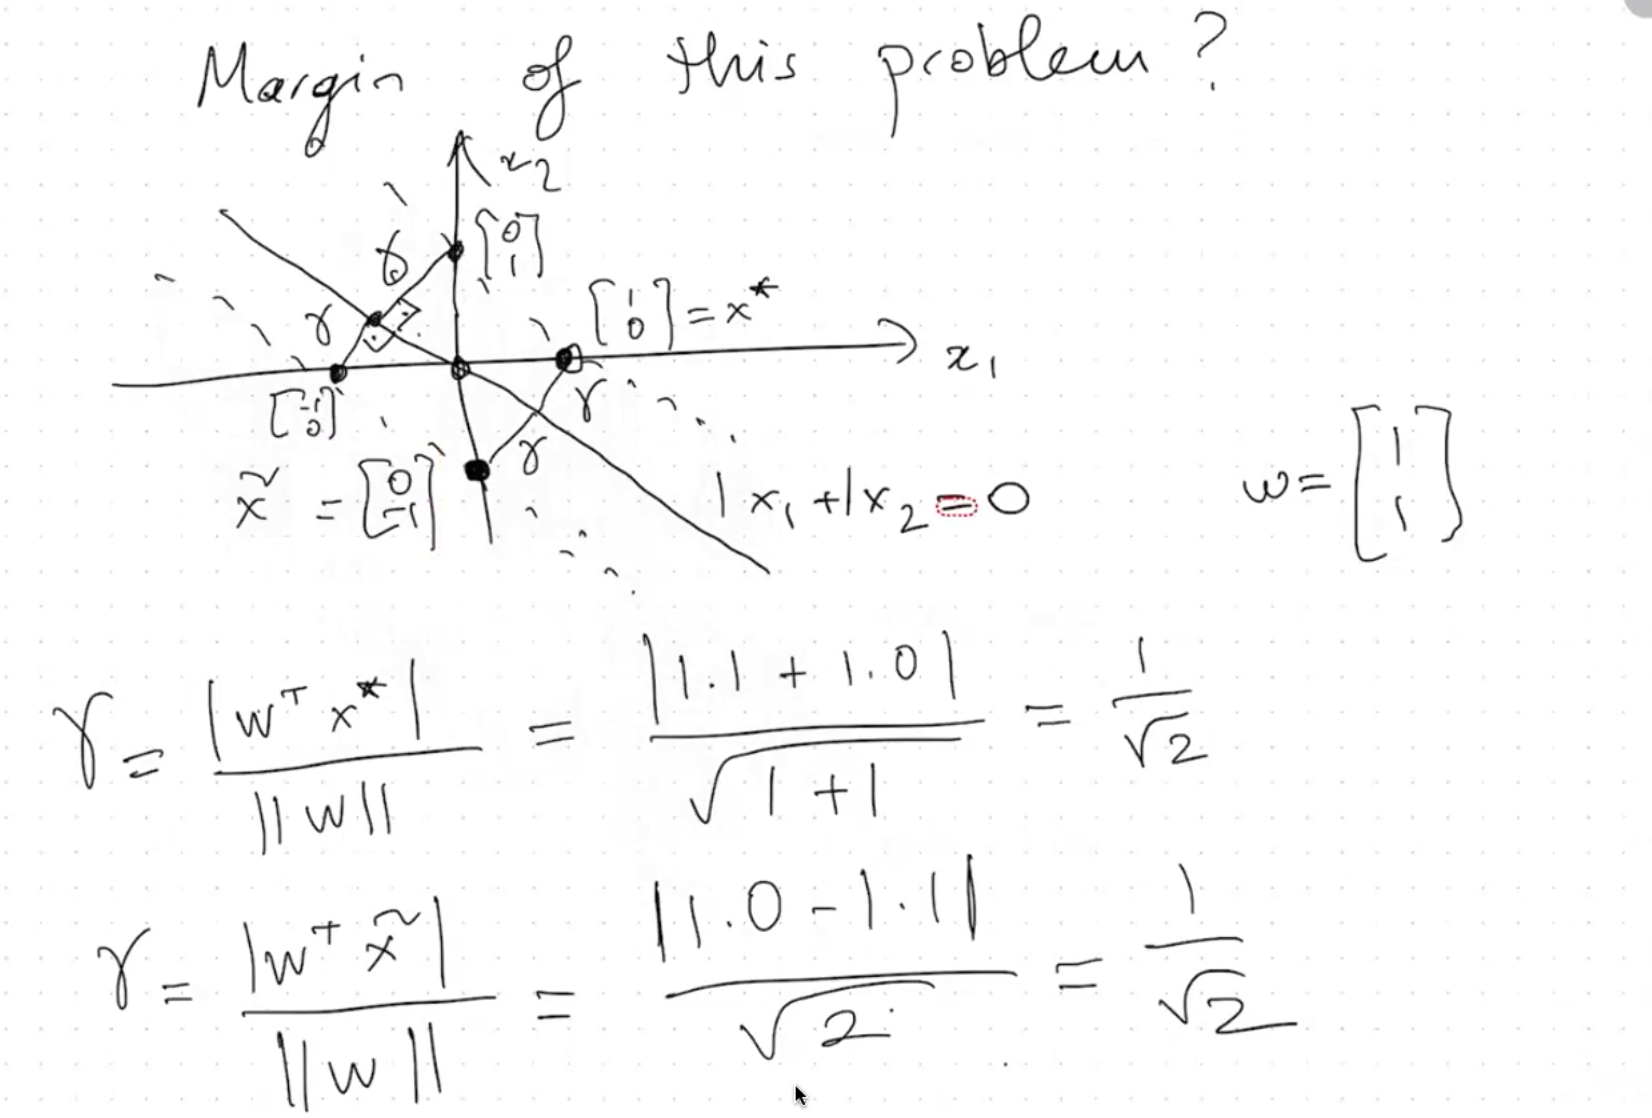 Margin of this problem?
x₂
γ [0 1]
γ [1 0] = x*
x₁
[-1 0] γ
x̃ = [0 -1] γ
1x₁ + 1x₂ = 0 w = [1 1]
γ = |wᵀ x*| / ||w|| = |1.1 + 1.0| / √(1+1) = 1/√2
γ = |wᵀ x̃| / ||w|| = |1.0 - 1.1| / √2 = 1/√2